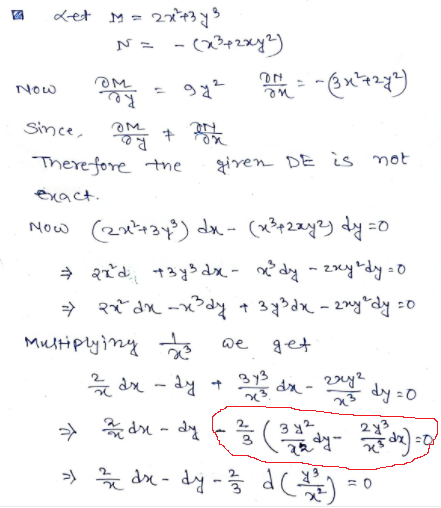 Let M = 2x²+3y³
N = - (x³+2xy²)
Now ∂M/∂y = 9y² ∂N/∂x = -(3x²+2y²)
Since, ∂M/∂y ≠ ∂N/∂x
Therefore the given DE is not
exact.
Now (2x²+3y³) dx - (x³+2xy²) dy =0
⇒ 2x²d, +3y³dx - x³dy - 2xy²dy =0
⇒ 2x²dx - x³dy + 3y³dx - 2xy²dy =0
Multiplying 1/x³ we get
2/x dx - dy + 3y³/x³ dx - 2xy²/x³ dy =0
⇒ 2/x dx - dy - 2/3 (3y²/x² dy - 2y³/x³ dx) =0
⇒ 2/x dx - dy - 2/3 d(y³/x²) = 0